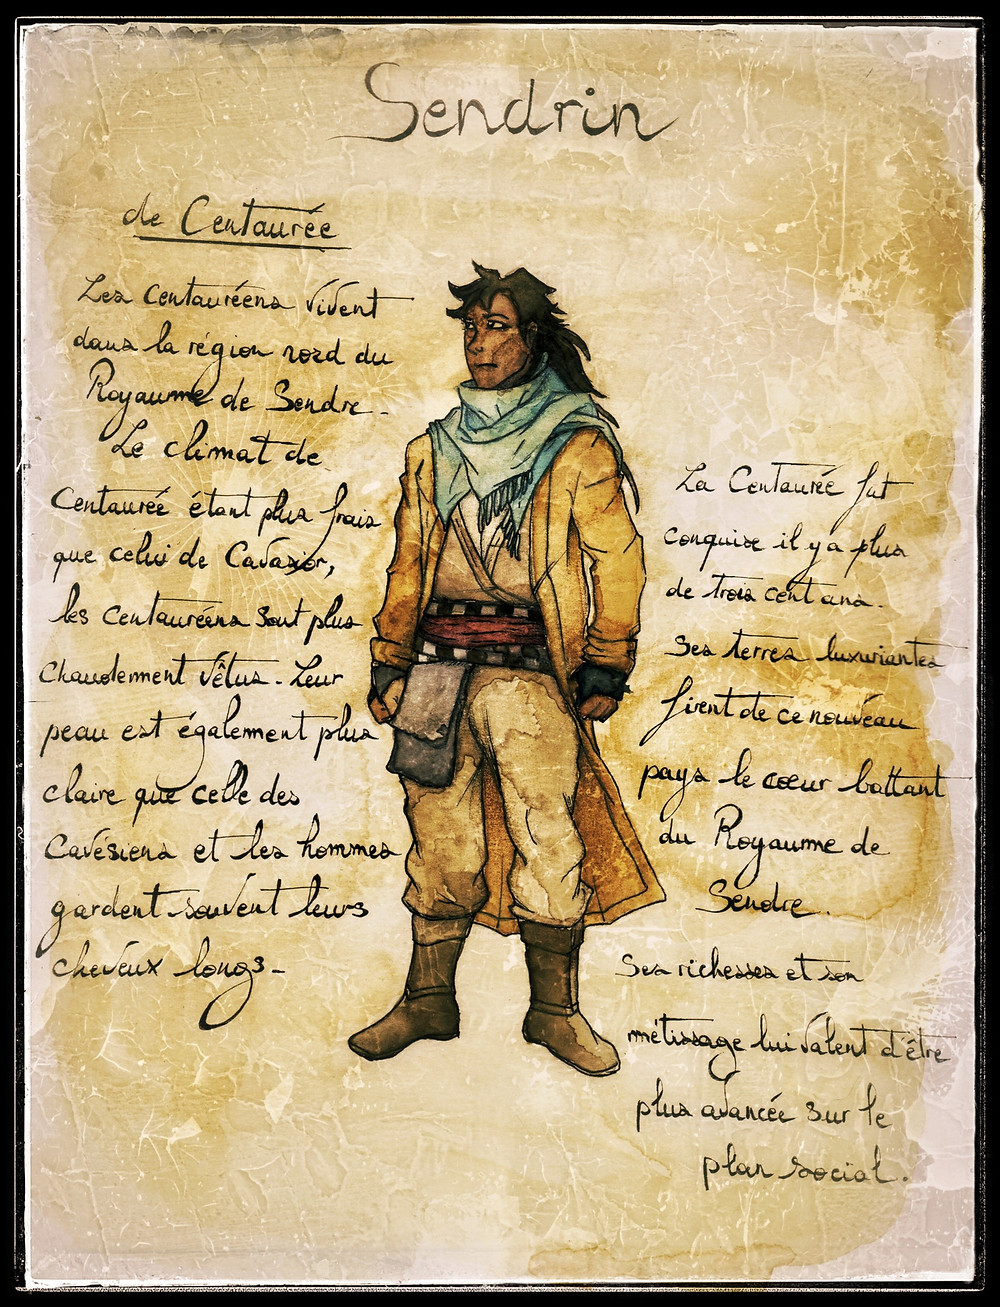 Sendrin
de Centaurée
Les Centauréens vivent
dans la région nord du
Royaume de Sendre.
Le climat de
Centaurée étant plus frais
que celui de Cavasior,
les Centauréens sont plus
chaudement vêtus. Leur
peau est également plus
claire que celle des
Cavésiens et les hommes
gardent souvent leurs
cheveux longs.
La Centaurée fut
conquise il y a plus
de trois cent ans.
Ses terres luxuriantes
firent de ce nouveau
pays le cœur battant
du Royaume de
Sendre.
Ses richesses et son
métissage lui valent d'être
plus avancée sur le
plan social.